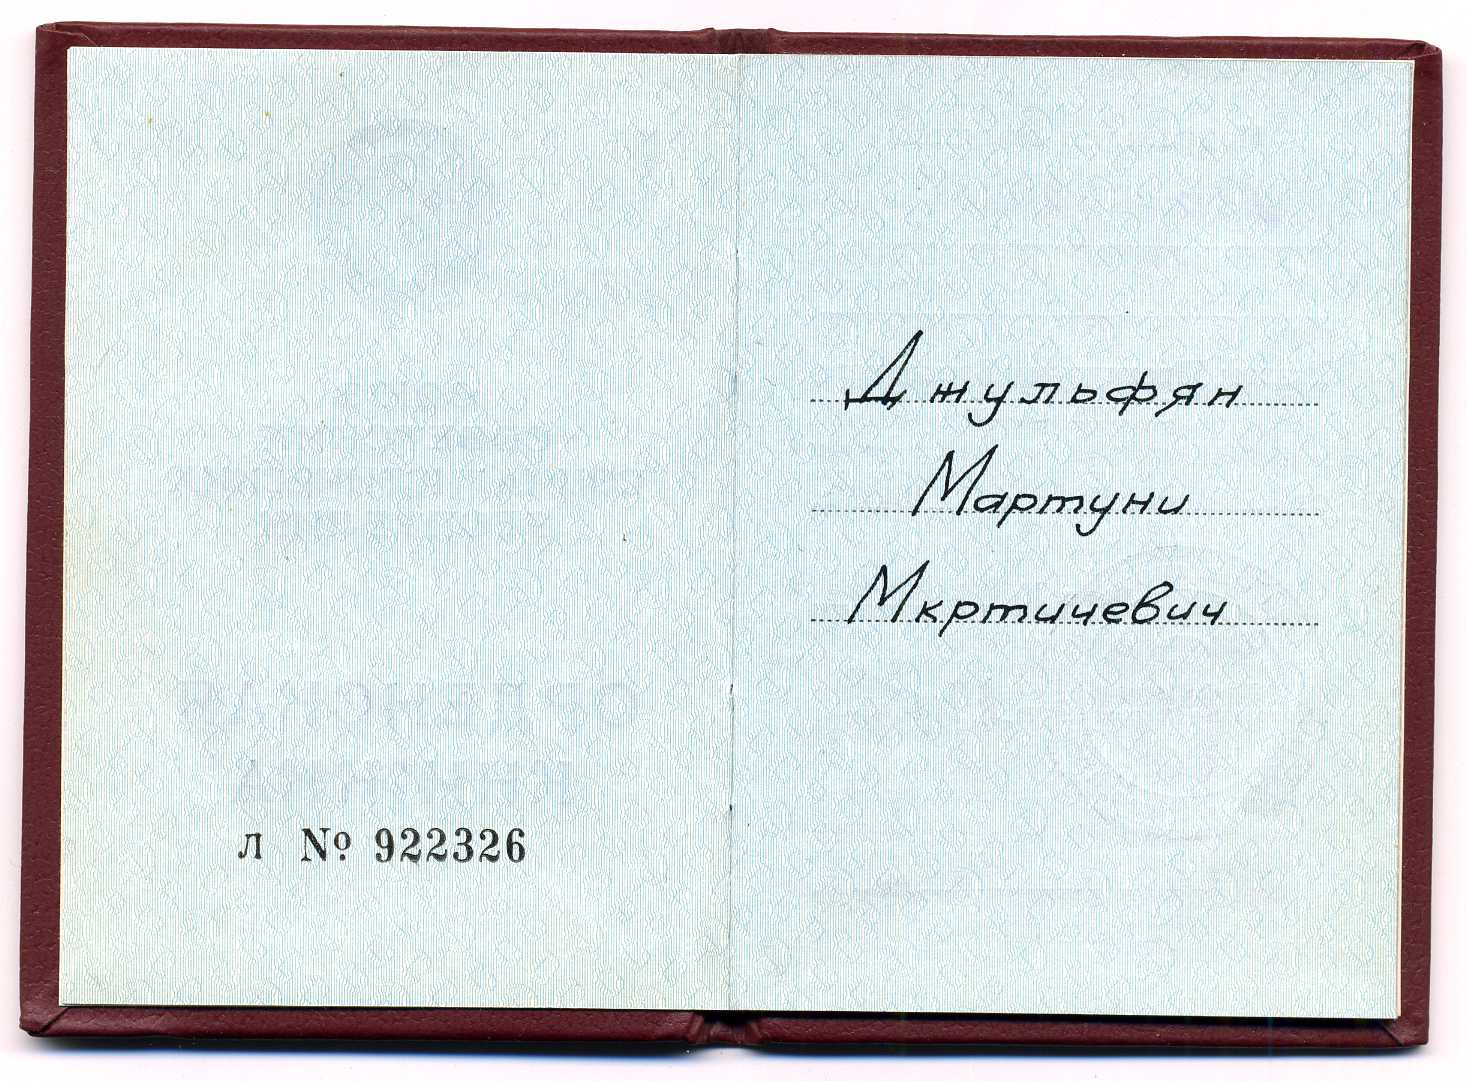 л № 922326
Джульфян
Мартуни
Мкртичевич